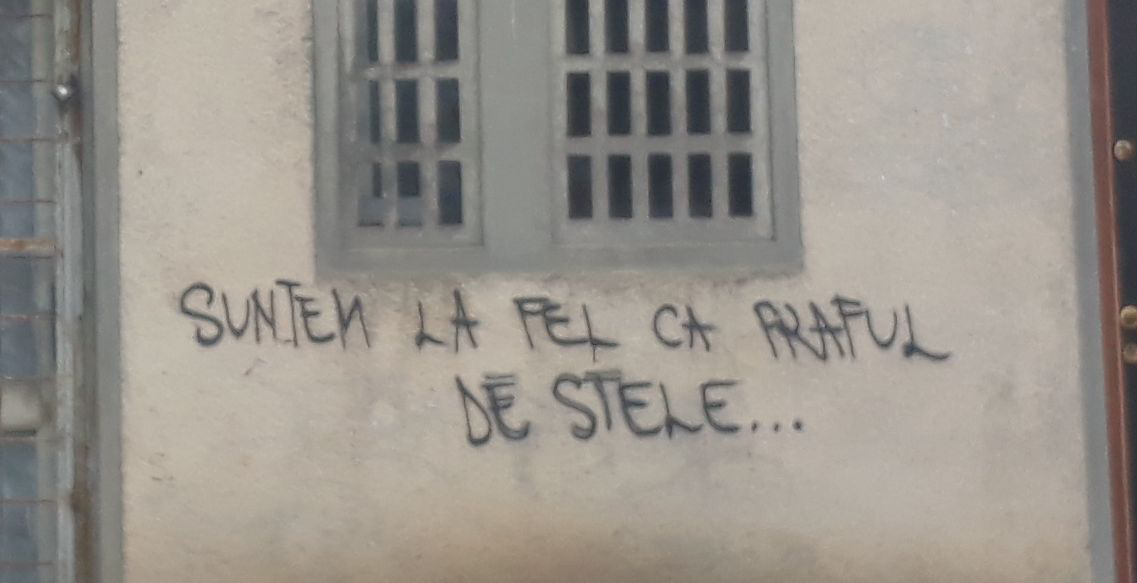 SUNTEM LA FEL CA PRAFUL
DE STELE...